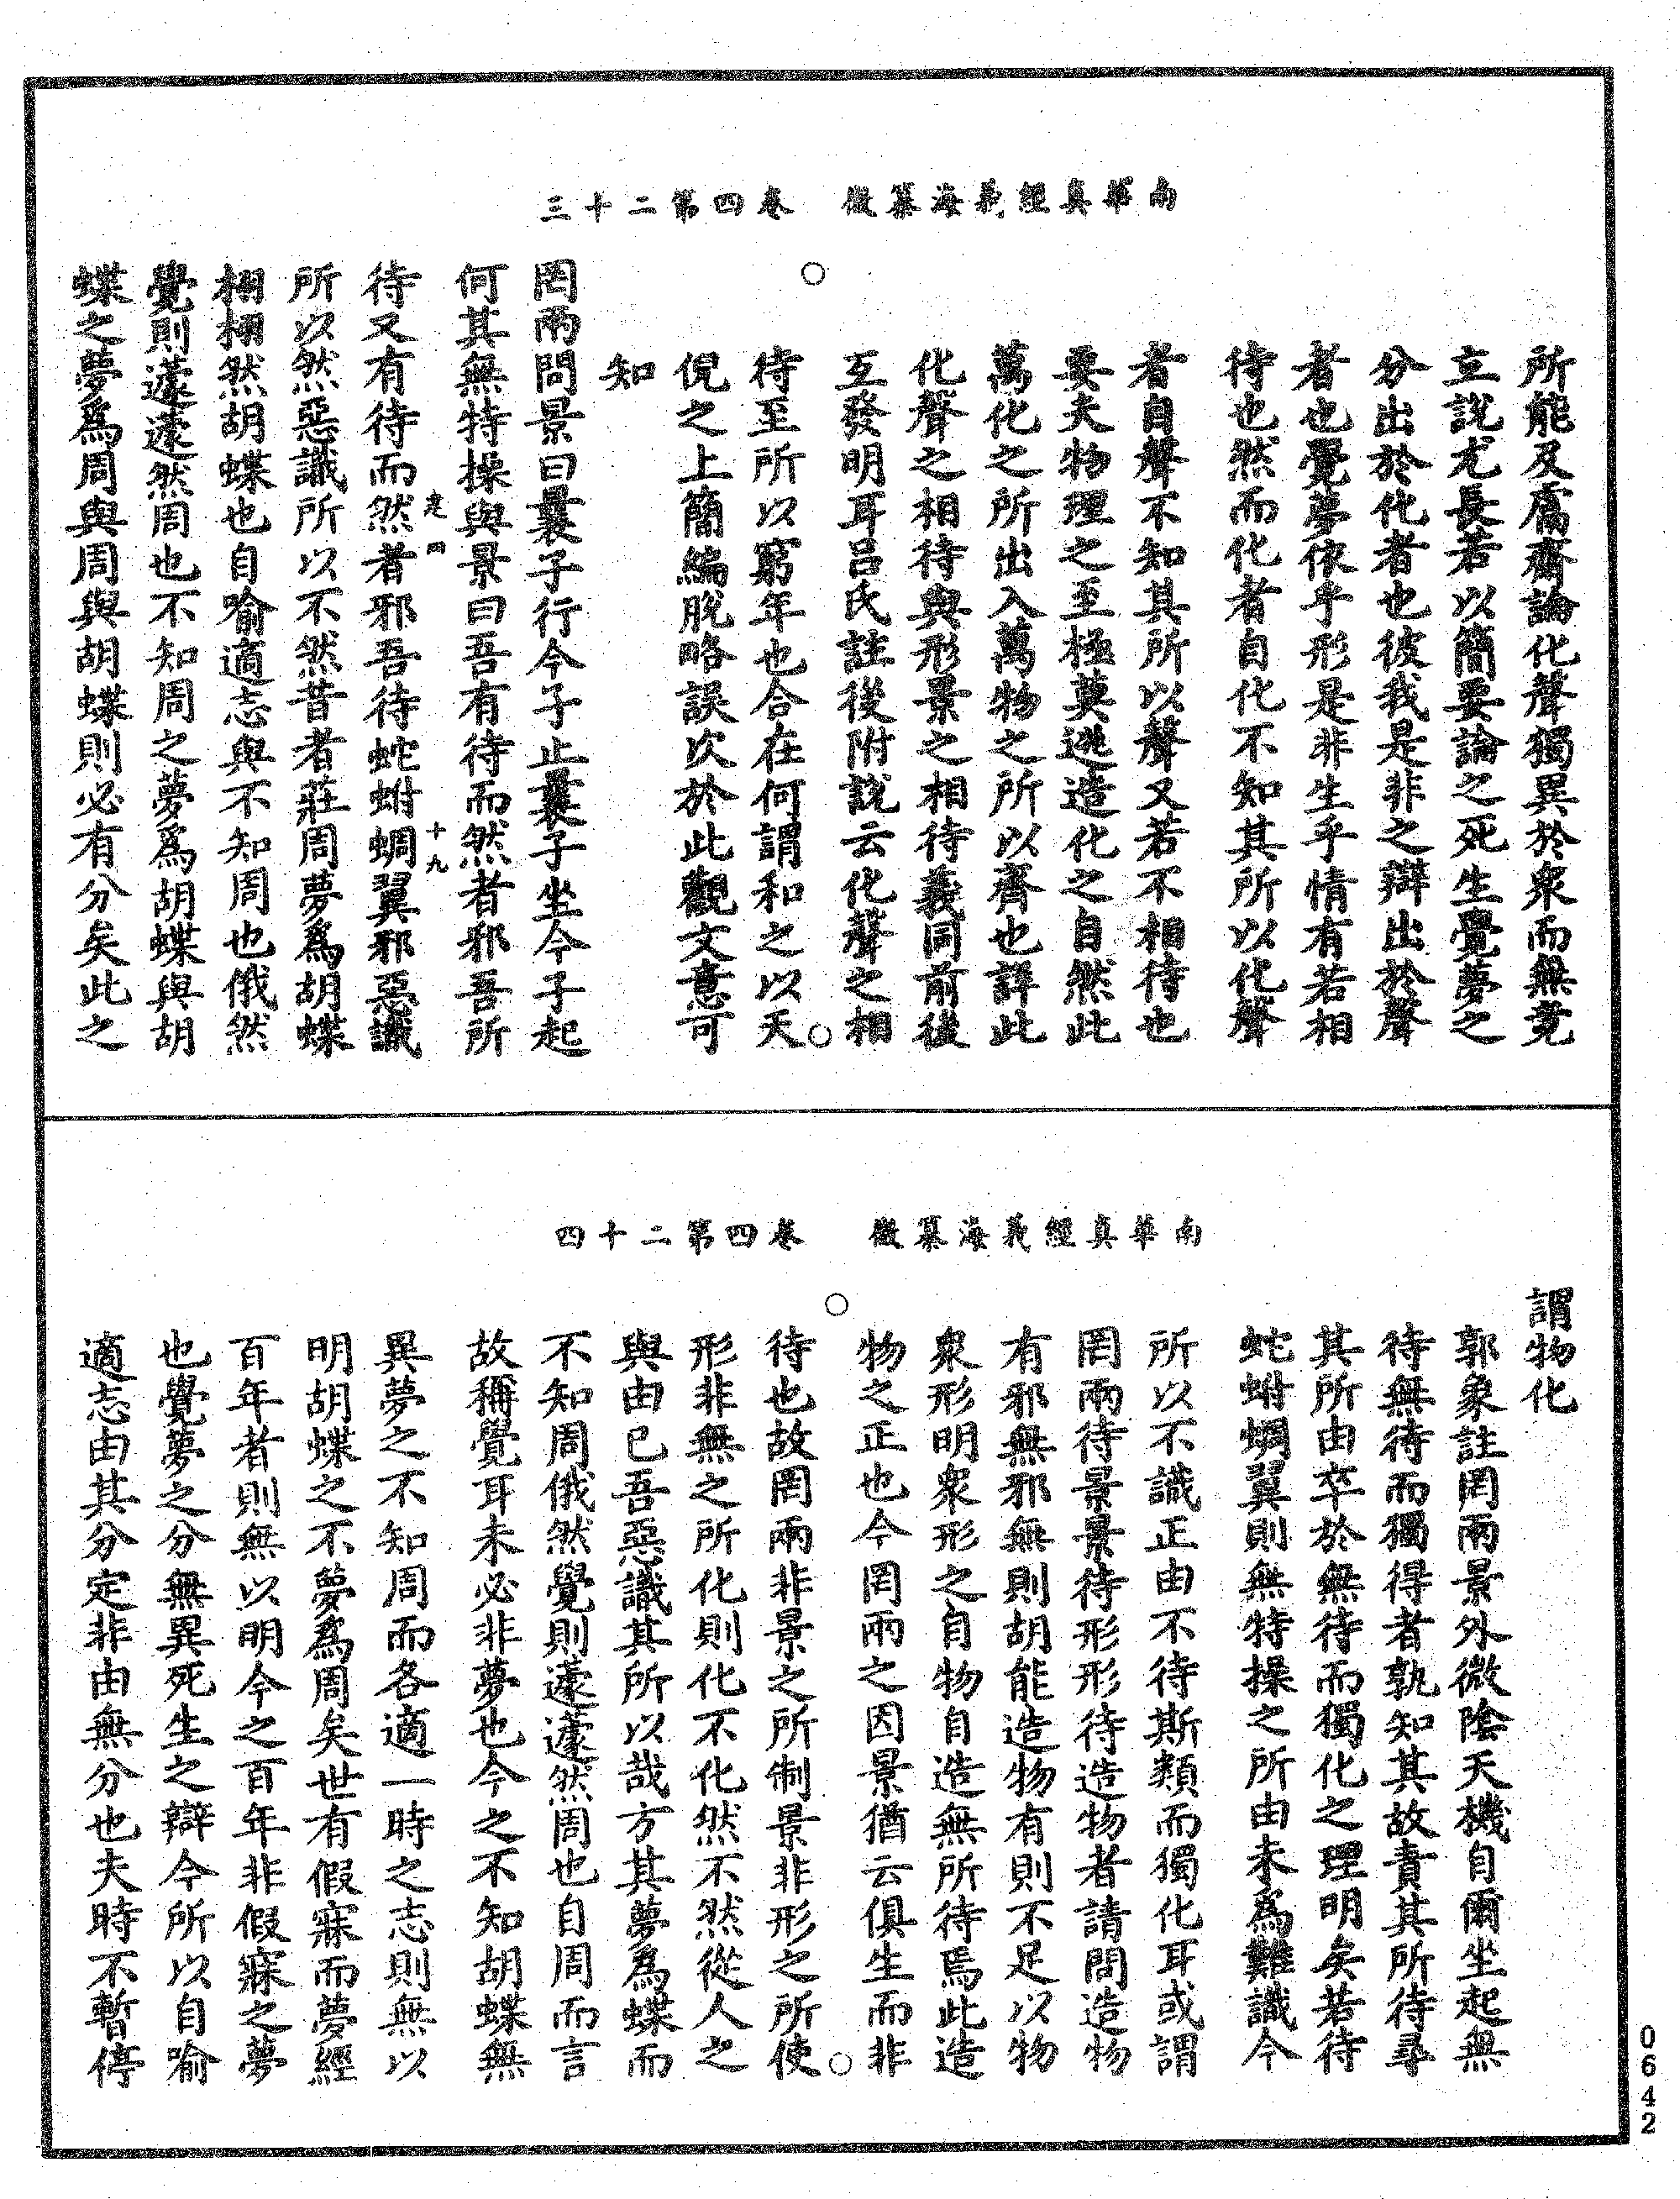 南華真經義海纂微　卷四第二十三
所能及鬳齋論化聲獨異於衆而無竟
立說尤長若以簡要論之死生覺夢之
分出於化者也彼我是非之辯出於聲
者也覺夢依乎形是非生乎情有若相
待也然而化者自化不知其所以化聲
者自聲不知其所以聲又若不相待也
要夫物理之至極莫逃造化之自然此
萬化之所出入萬物之所以齊也詳此
化聲之相待與形景之相待義同前後
互發明耳呂氏註後附說云化聲之相
○　○
待至所以窮年也合在何謂和之以天
倪之上簡編脫略誤次於此觀文意可
知
罔兩問景曰曩子行今子止曩子坐今子起
何其無特操與景曰吾有待而然者邪吾所
十九
待又有待而然者邪吾待蛇蚹蜩翼邪惡識
所以然惡識所以不然昔者莊周夢爲胡蝶
栩栩然胡蝶也自喻適志與不知周也俄然
覺則蘧蘧然周也不知周之夢爲胡蝶與胡
蝶之夢爲周與周與胡蝶則必有分矣此之
南華真經義海纂微　卷四第二十四
謂物化
郭象註罔兩景外微陰天機自爾坐起無
待無待而獨得者孰知其故責其所待尋
其所由卒於無待而獨化之理明矣若待
蛇蚹蜩翼則無特操之所由未爲難識今
所以不識正由不待斯類而獨化耳或謂
罔兩待景景待形形待造物者請問造物
有邪無邪無則胡能造物有則不足以物
衆形明衆形之自物自造無所待焉此造
物之正也今罔兩之因景猶云俱生而非
○　○
待也故罔兩非景之所制景非形之所使
形非無之所化則化不化然不然從人之
與由已吾惡識其所以哉方其夢爲蝶而
不知周俄然覺則蘧蘧然周也自周而言
故稱覺耳未必非夢也今之不知胡蝶無
異夢之不知周而各適一時之志則無以
明胡蝶之不夢爲周矣世有假寐而夢經
百年者則無以明今之百年非假寐之夢
也覺夢之分無異死生之辯今所以自喻
適志由其分定非由無分也夫時不暫停
0642